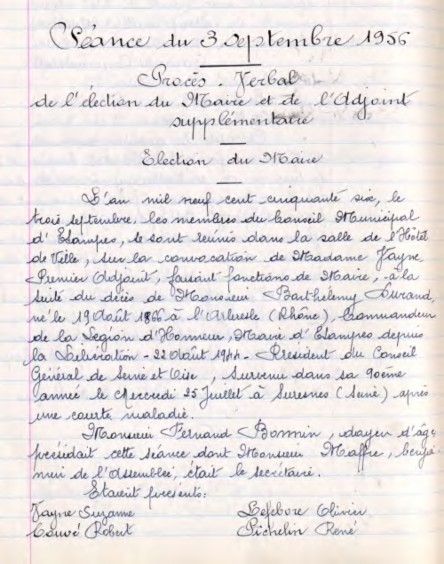 Séance du 3 septembre 1956
Procès-Verbal
de l'élection du Maire et de l'Adjoint
supplémentaire
Election du Maire
L'an mil neuf cent cinquante six, le
trois septembre, les membres du Conseil Municipal
d'Etampes, se sont réunis dans la salle de l'Hôtel
de Ville, sur la convocation de Madame Fayne,
Premier Adjoint, faisant fonctions de Maire, à la
suite du décès de Monsieur Barthélemy Durand,
né le 19 Août 1866 à l'Arbresle (Rhône), Commandeur
de la Légion d'Honneur, Maire d'Etampes depuis
la Libération - 22 Août 1944 - Président du Conseil
Général de Seine et Oise, survenu dans sa 90ème
année le Mercredi 25 Juillet à Suresnes (Seine) après
une courte maladie.
Monsieur Fernand Bonnin, doyen d'âge
présidait cette séance dont Monsieur Maffre, benja-
min de l'Assemblée, était le secrétaire.
Etaient présents:
Fayne Suzanne Lefebvre Olivier
Robert Pichelin René